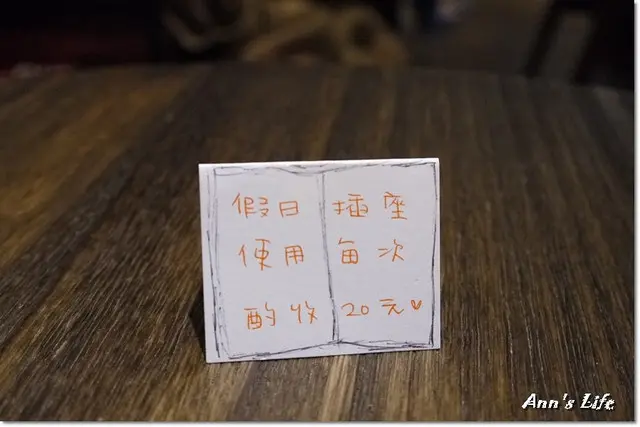 假日插座
使用每次
酌收20元♥
Ann's Life